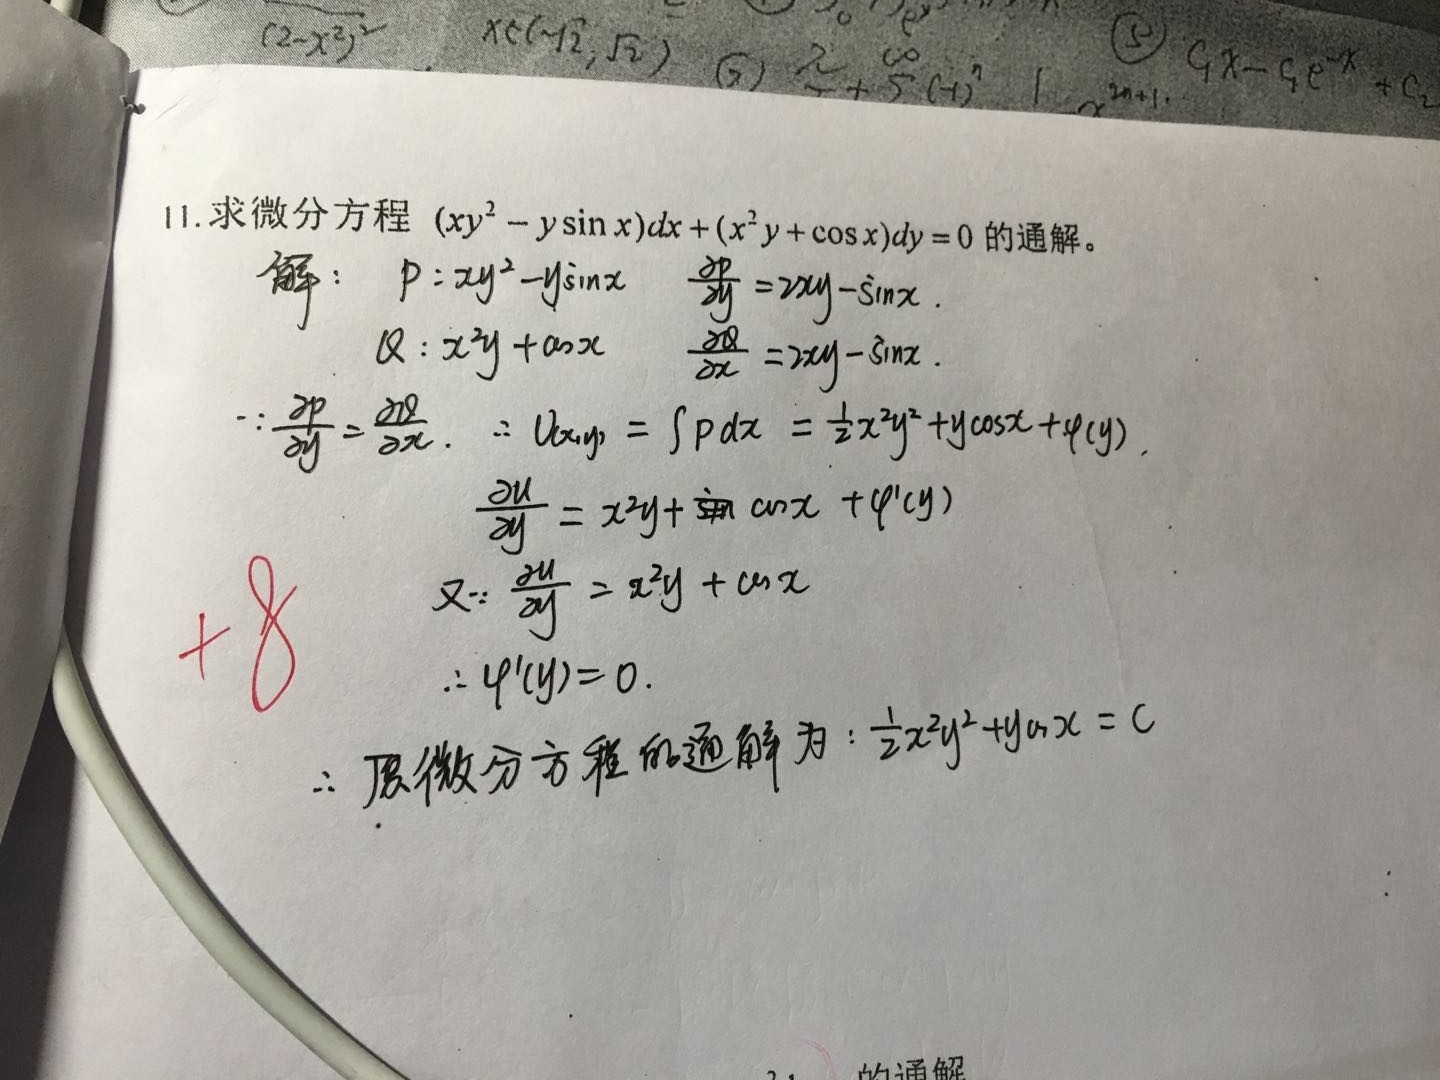 (2-x²)²
x∈(-√2, √2)
(-1)ⁿ
C₁x - C₁e⁻ˣ + C₂
11. 求微分方程 (xy² − y sin x)dx + (x²y + cos x)dy = 0 的通解。
解: P: xy² - ysinx ∂P/∂y = 2xy - sinx.
Q: x²y + cosx ∂Q/∂x = 2xy - sinx.
∵ ∂P/∂y = ∂Q/∂x. ∴ U(x,y) = ∫Pdx = ½x²y² + ycosx + φ(y),
∂u/∂y = x²y + cosx + φ'(y)
又∵ ∂u/∂y = x²y + cosx
+8
∴ φ'(y) = 0.
∴ 原微分方程的通解为: ½x²y² + ycosx = C
的通解